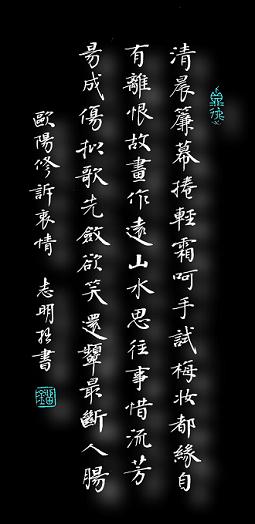 清晨簾幕捲輕霜呵手試梅妝都緣自
有離恨故畫作遠山水思往事惜流芳
易成傷拟歌先斂欲笑還顰最斷人腸
歐陽修訴衷情 志明書